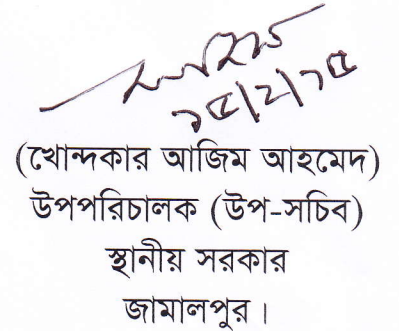 ১৫/২/১৫
(খোন্দকার আজিম আহমেদ)
উপপরিচালক (উপ-সচিব)
স্থানীয় সরকার
জামালপুর ।